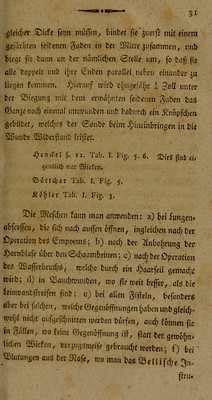 31
gleicher Dicke seyn müssen, bindet sie zuerst mit einem
gefärbten seidenen Faden in der Mitte zusammen, und
biegt sie dann an der nämlichen Stelle um, so daß sie
alle doppelt und ihre Enden parallel neben einander zu
liegen kommen. Hierauf wird ohngefähr ½ Zoll unter
der Biegung mit dem erwähnten seidenen Faden das
Ganze noch einmal umwunden und dadurch ein Knöpfchen
gebildet, welches der Sonde beim Hineinbringen in die
Wunde Widerstand leistet.
Henckel §. 12. Tab. I. Fig. 5. 6. Dies sind ei-
gentlich nur Wieken.
Böttcher Tab. I. Fig. 5.
Köhler Tab. I. Fig. 3.
Die Meschen kann man anwenden: a) bei Lungen-
abscessen, die sich nach aussen öffnen, ingleichen nach der
Operation des Empyems; b) nach der Anbohrung der
Harnblase über den Schaambeinen; c) nach der Operation
des Wasserbruchs, welche durch ein Haarseil gemacht
wird; d) in Bauchwunden, wo sie weit besser, als die
Leinwandstreifen sind; e) bei allen Fisteln, besonders
aber bei solchen, welche Gegenöffnungen haben und gleich-
wohl nicht aufgeschnitten werden dürfen, auch können sie
in Fällen, wo keine Gegenöffnung ist, statt der gewöhn-
lichen Wieken, vorzugsweise gebraucht werden; f) bei
Blutungen aus der Nase, wo man das Bellische In-
stru-